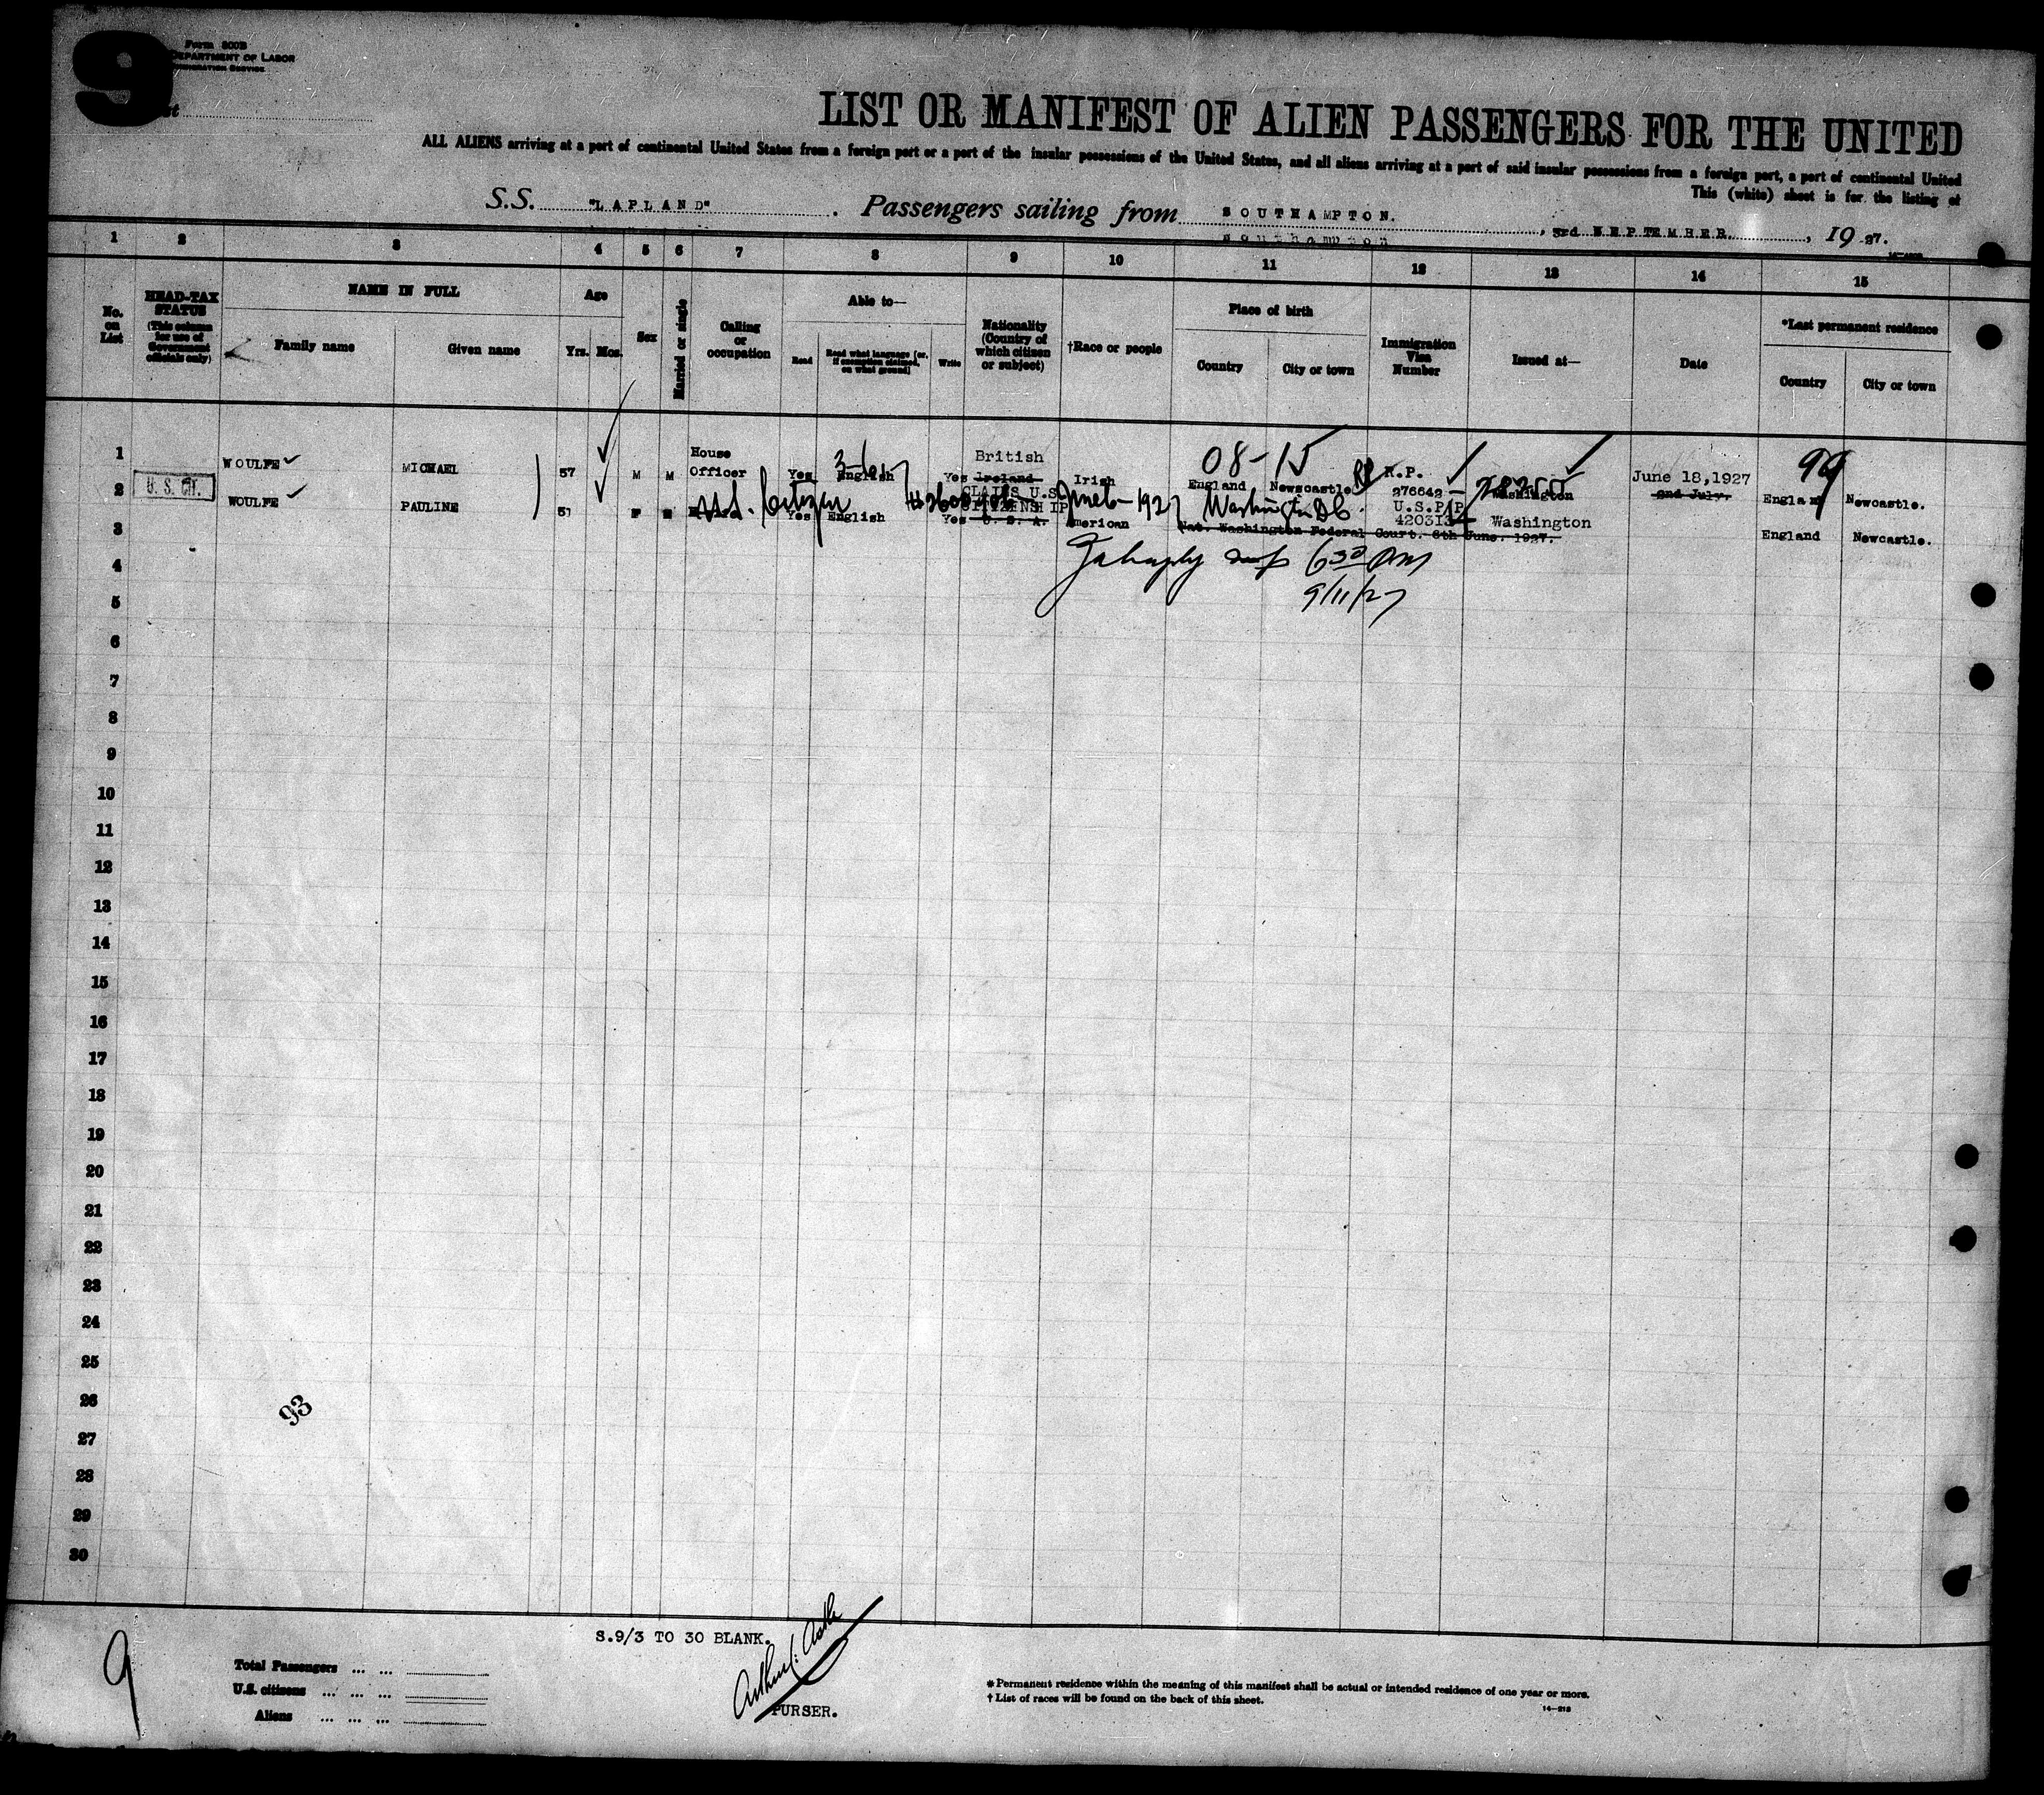 9
Form 500B
DEPARTMENT OF LABOR
IMMIGRATION SERVICE
LIST OR MANIFEST OF ALIEN PASSENGERS FOR THE UNITED
ALL ALIENS arriving at a port of continental United States from a foreign port or a port of the insular possessions of the United States, and all aliens arriving at a port of said insular possessions from a foreign port, a port of continental United
This (white) sheet is for the listing of
S.S. "LAPLAND" . Passengers sailing from SOUTHAMPTON. , 3rd SEPTEMBER , 19 27.
Southampton
1 2 3 4 5 6 7 8 9 10 11 12 13 14 15
No. on List
HEAD-TAX STATUS
(This column for use of Government officials only)
NAME IN FULL
Family name
Given name
Age
Yrs. Mos.
Sex
Married or single
Calling or occupation
Able to—
Read
Read what language (or, if exemption claimed, on what ground)
Write
Nationality (Country of which citizen or subject)
†Race or people
Place of birth
Country
City or town
Immigration Visa Number
Issued at—
Date
*Last permanent residence
Country
City or town
1 WOULFE MICHAEL 57 M M House Officer Yes English Yes British Ireland Irish England Newcastle R.P. 276642 Washington June 18,1927 2nd July. England Newcastle.
08-15
99
2 U.S. CIT. WOULFE PAULINE 51 F M Yes English Yes CLAIMS U.S. CITIZENSHIP U. S. A. American U.S.P.P. 420313 Washington England Newcastle.
U.S. Citizen June 6-1927 Washington D.C.
Nat. Washington Federal Court. 6th June. 1927.
630 PM
9/11/27
3
4
5
6
7
8
9
10
11
12
13
14
15
16
17
18
19
20
21
22
23
24
25
26
27
28
29
30
93
9
S.9/3 TO 30 BLANK.
PURSER.
Total Passengers ... ...
U.S. citizens ... ... ...
Aliens ... ... ...
* Permanent residence within the meaning of this manifest shall be actual or intended residence of one year or more.
† List of races will be found on the back of this sheet.
14—213